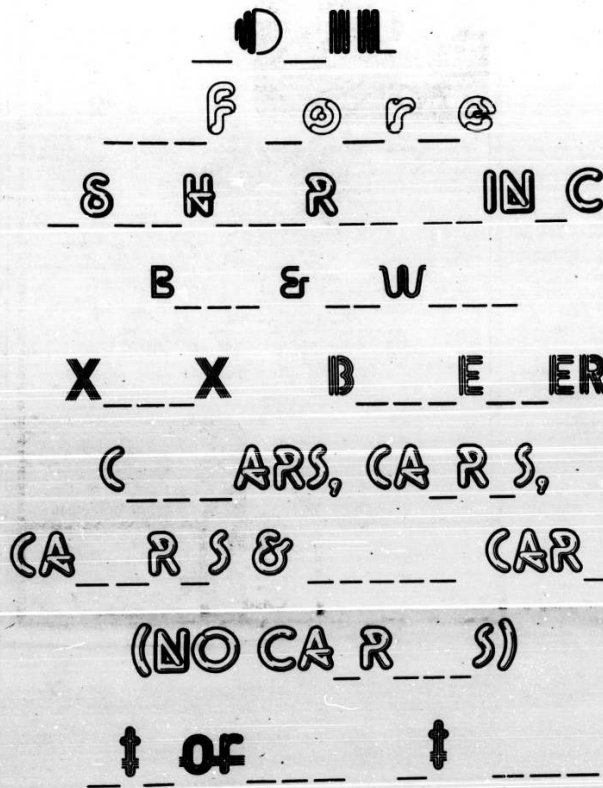 ____F _a_r__e
_S__H____R___ __IN_C
B___ & __W___
X___X B___E__ER
C____ARS, CA_R_S,
CA__R_S & _____ CAR_
(NO CA_R___S)
_t_or____ _t ____